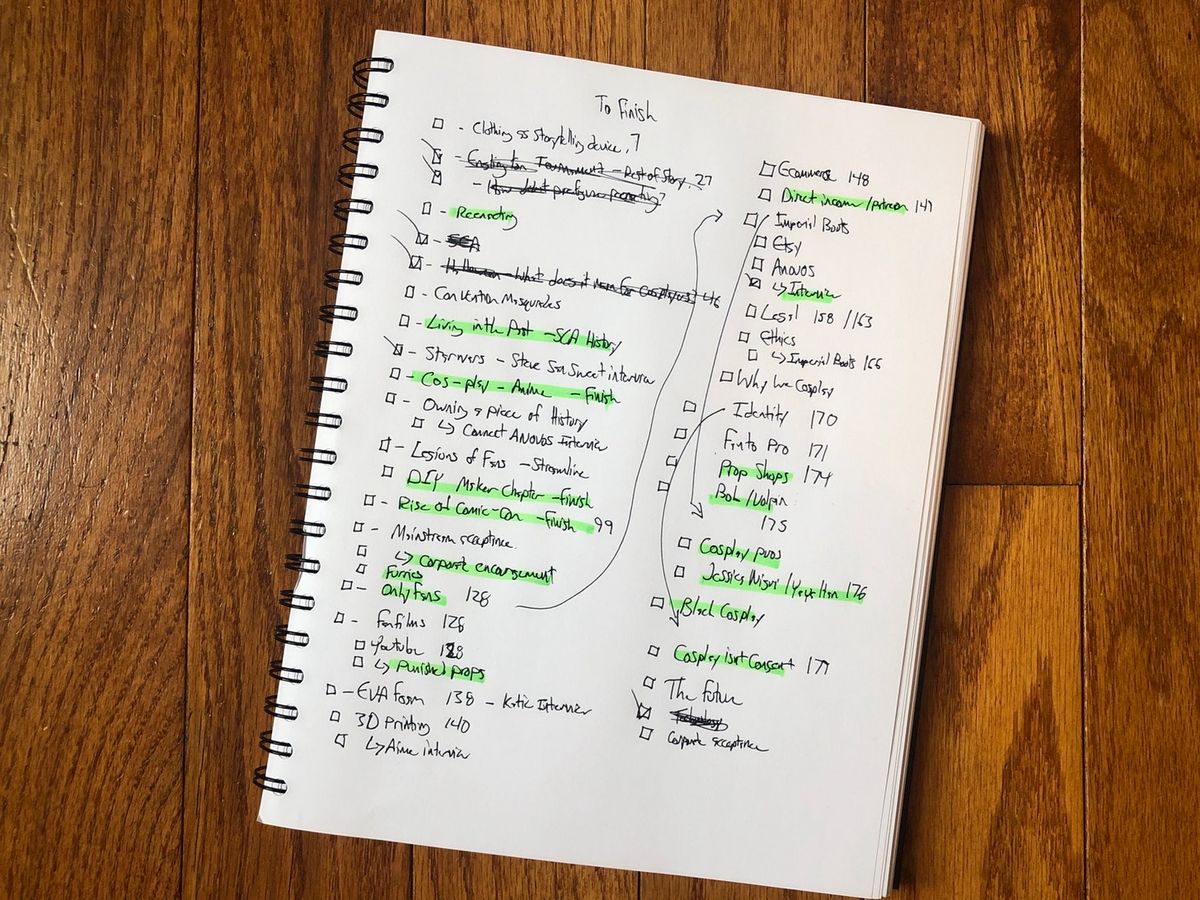 To Finish
- Clothing as Storytelling device, 7
- Eglinton Tournament - Rest of Story, 27
- How did it prefigure reenacting?
- Reenacting
- SCA
- Halloween - What does it mean for cosplayers? 46
- Convention Masquerades
- Living in the Past - SCA History
- Starwars - Steve Sansweet interview
- Cos-play - Anime - Finish
- Owning a piece of History
↳ Connect ANOVOS Interview
- Legions of Fans - Streamline
DIY Maker Chapter - finish
- Rise of Comic-Con - Finish 99
- Mainstream acceptance.
↳ Corporate encouragement
Furries
- Only Fans 128
- Fan films 126
Youtube 128
↳ Punished props
- EVA Foam 138 - Katie Interview
3D Printing 140
↳ Aime interview
Ecommerce 148
Direct income / patreon 149
Imperial Boots
Etsy
Anovos
↳ Interview
Legal 158 / 163
Ethics
↳ Imperial Boots 166
Why We Cosplay
Identity 170
Fan to Pro 171
Prop Shops 174
Bob / Volpin
175
Cosplay pros
Jessica Nigri / Yaya Han 176
Black Cosplay
Cosplay isn't Consent 177
The Future
Technology
Corporate acceptance